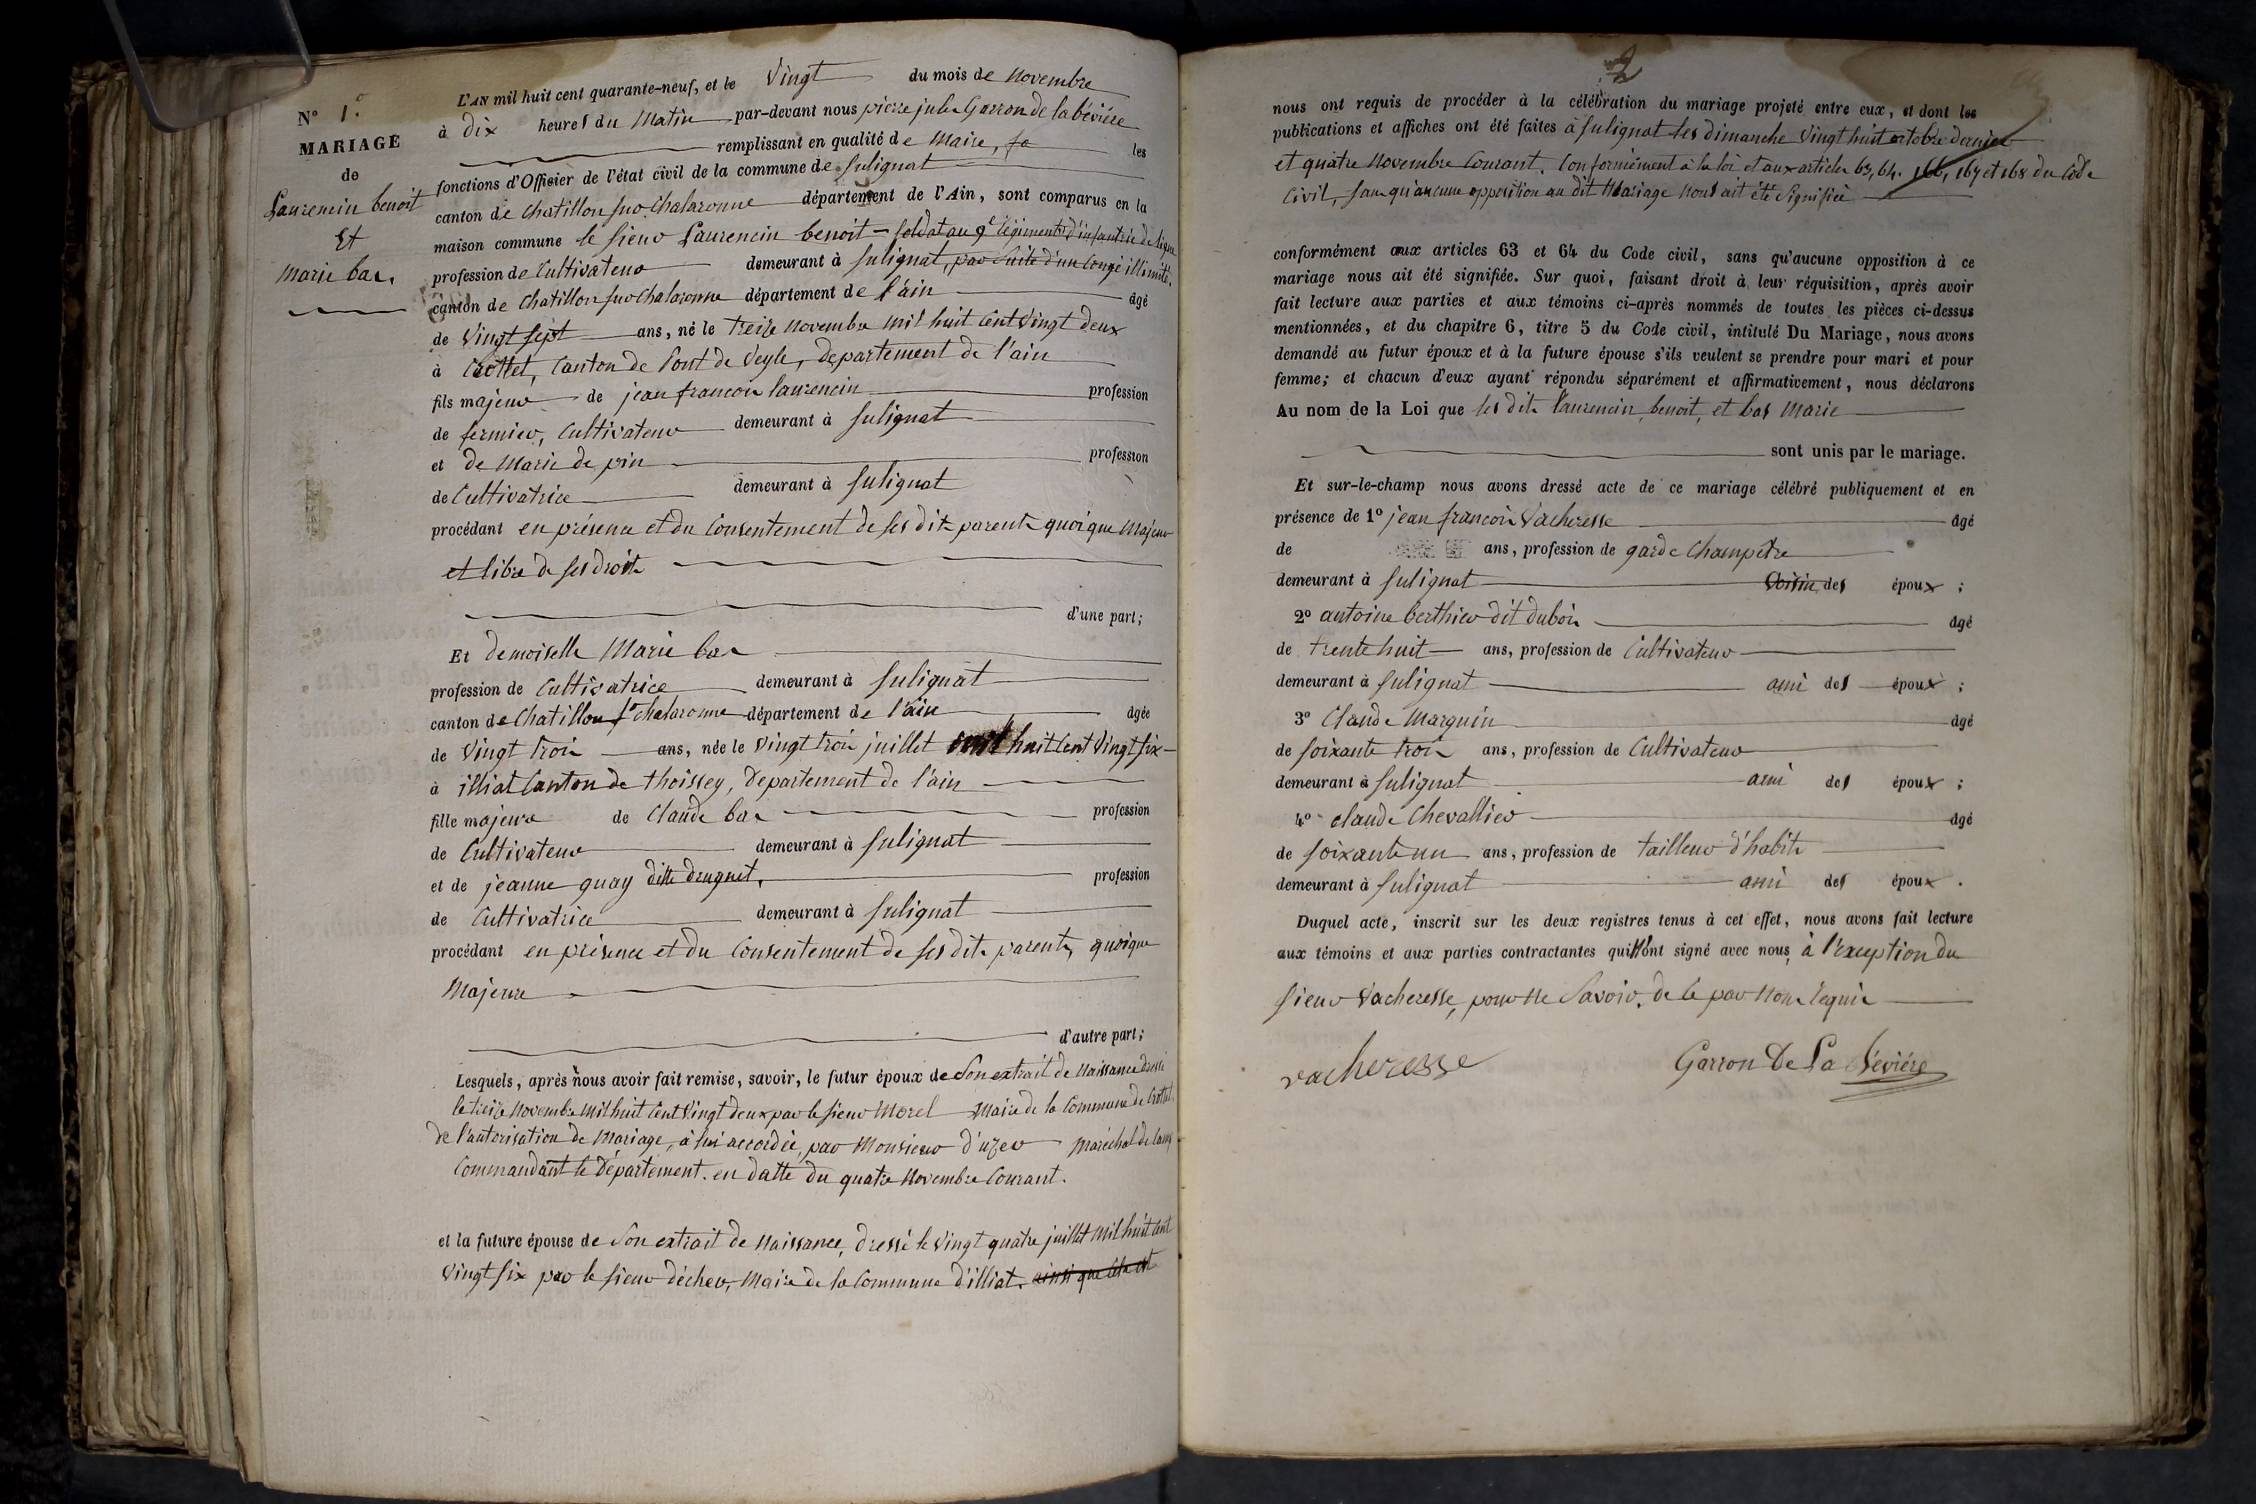 N° 1.°
MARIAGE
de
Laurencin benoit
Et
Marie bas.
L'AN mil huit cent quarante-neuf, et le Vingt du mois de Novembre
à dix heures du Matin par-devant nous pierre jules Garron de la bévière
remplissant en qualité de Maire, les
fonctions d'Officier de l'état civil de la commune de Sulignat
canton de Chatillon sur Chalaronne département de l'Ain, sont comparus en la
maison commune le sieur Laurencin benoit - soldat au 9e régiment d'infanterie de ligne
profession de Cultivateur demeurant à Sulignat, par suite d'un congé illimité,
canton de Chatillon sur Chalaronne département de l'ain âgé
de Vingt sept ans, né le treize novembre mil huit Cent Vingt deux
à Crottet, Canton de Pont de Veyle, departement de l'ain
fils majeur de jean françois laurencin profession
de fermier, Cultivateur demeurant à Sulignat
et de Marie de pin profession
de Cultivatrice demeurant à Sulignat
procédant en présence et du Consentement de ses dits parents quoique Majeur
et libre de ses droits
d'une part;
Et demoiselle Marie bas
profession de Cultivatrice demeurant à Sulignat
canton de Chatillon sr chalaronne département de l'ain âgée
de Vingt trois ans, née le Vingt trois juillet mil huit Cent Vingt six
à illiat Canton de thoissey, departement de l'ain
fille majeure de Claude bas profession
de Cultivateur demeurant à Sulignat
et de jeanne quay ditte druguet, profession
de Cultivatrice demeurant à Sulignat
procédant en présence et du Consentement de ses dits parents, quoique
Majeure
d'autre part;
Lesquels, après nous avoir fait remise, savoir, le futur époux de Son extrait de Naissance dressé
le treize Novembre Mil huit Cent Vingt deux par le sieur Morel Maire de la Commune de Crottet,
de l'autorisation de Mariage, à lui accordée, par Monsieur d'uzer Maréchal de Camp
Commandant le Département. en datte du quatre Novembre Courant.
et la future épouse de Son extrait de Naissance, dressé le Vingt quatre juillet Mil huit Cent
Vingt six par le sieur décher, Maire de la Commune d'illiat. ainsi que cela est
2
nous ont requis de procéder à la célébration du mariage projeté entre eux, et dont les
publications et affiches ont été faites à Sulignat les dimanche Vingt huit octobre dernier
et quatre Novembre Courant. Conformément à la loi et aux articles 63, 64. 166, 167 et 168 du Code
Civil, sans qu'aucune opposition au dit Mariage Nous ait été Signifiée
conformément aux articles 63 et 64 du Code civil, sans qu'aucune opposition à ce
mariage nous ait été signifiée. Sur quoi, faisant droit à leur réquisition, après avoir
fait lecture aux parties et aux témoins ci-après nommés de toutes les pièces ci-dessus
mentionnées, et du chapitre 6, titre 5 du Code civil, intitulé Du Mariage, nous avons
demandé au futur époux et à la future épouse s'ils veulent se prendre pour mari et pour
femme; et chacun d'eux ayant répondu séparément et affirmativement, nous déclarons
Au nom de la Loi que les dits Laurencin, benoit, et bas Marie
sont unis par le mariage.
Et sur-le-champ nous avons dressé acte de ce mariage célébré publiquement et en
présence de 1° jean françois Vacheresse âgé
de ans, profession de garde Champêtre
demeurant à Sulignat Voisin des époux ;
2° antoine berthier dit dubois âgé
de trente huit ans, profession de Cultivateur
demeurant à Sulignat ami des époux ;
3° Claude Marguin âgé
de soixante trois ans, profession de Cultivateur
demeurant à Sulignat ami des époux ;
4° claude Chevallier âgé
de soixante un ans, profession de tailleur d'habits
demeurant à Sulignat ami des époux .
Duquel acte, inscrit sur les deux registres tenus à cet effet, nous avons fait lecture
aux témoins et aux parties contractantes qui n'ont signé avec nous, à l'exception du
sieur Vacheresse, pour ne Savoir, de ce par Nous requis
vacheresse
Garron De La Bévière